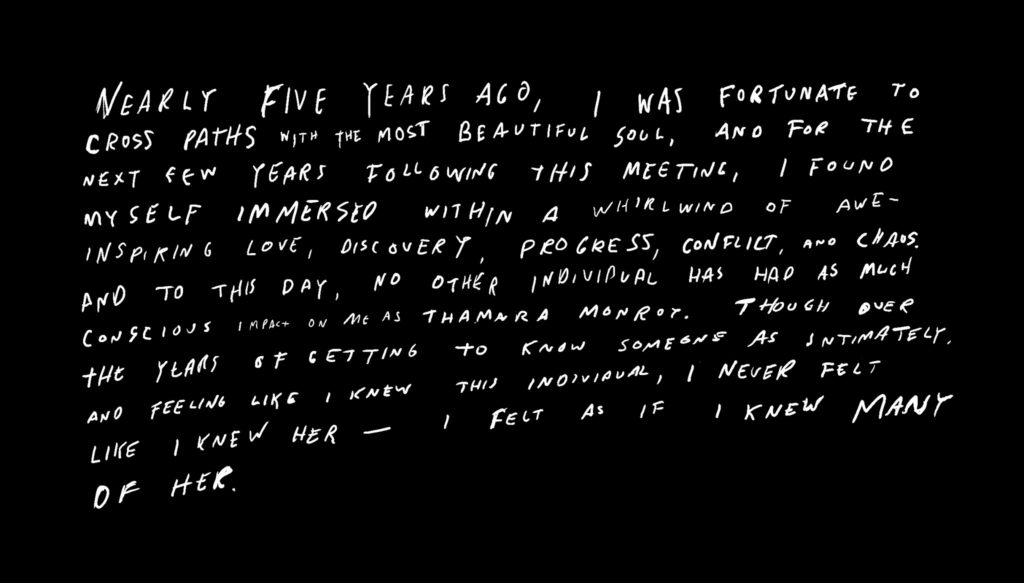 NEARLY FIVE YEARS AGO, I WAS FORTUNATE TO
CROSS PATHS WITH THE MOST BEAUTIFUL SOUL, AND FOR THE
NEXT FEW YEARS FOLLOWING THIS MEETING, I FOUND
MYSELF IMMERSED WITHIN A WHIRLWIND OF AWE-
INSPIRING LOVE, DISCOVERY, PROGRESS, CONFLICT, AND CHAOS.
AND TO THIS DAY, NO OTHER INDIVIDUAL HAS HAD AS MUCH
CONSCIOUS IMPACT ON ME AS THAMARA MONROY. THOUGH OVER
THE YEARS OF GETTING TO KNOW SOMEONE AS INTIMATELY,
AND FEELING LIKE I KNEW THIS INDIVIDUAL, I NEVER FELT
LIKE I KNEW HER — I FELT AS IF I KNEW MANY
OF HER.